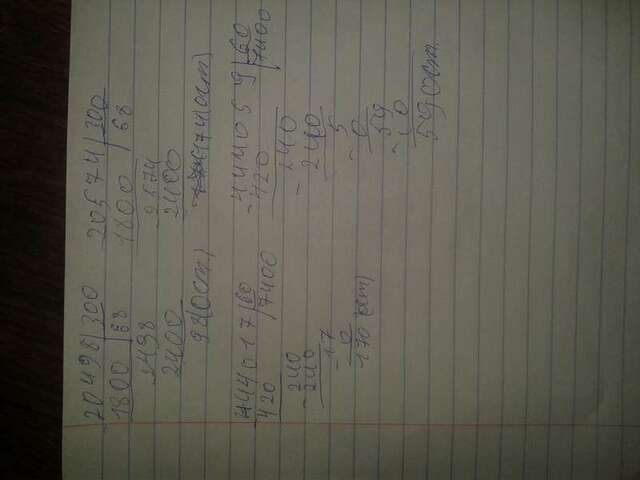 20498|300
1800|68
2498
2400
98(ост)
20574|300
1800|68
2574
2400
174(ост)
444017|60
420|7400
240
-240
17
- 0
17(ост)
-444059|60
420|7400
240
- 240
5
- 0
59
- 0
59 ост.